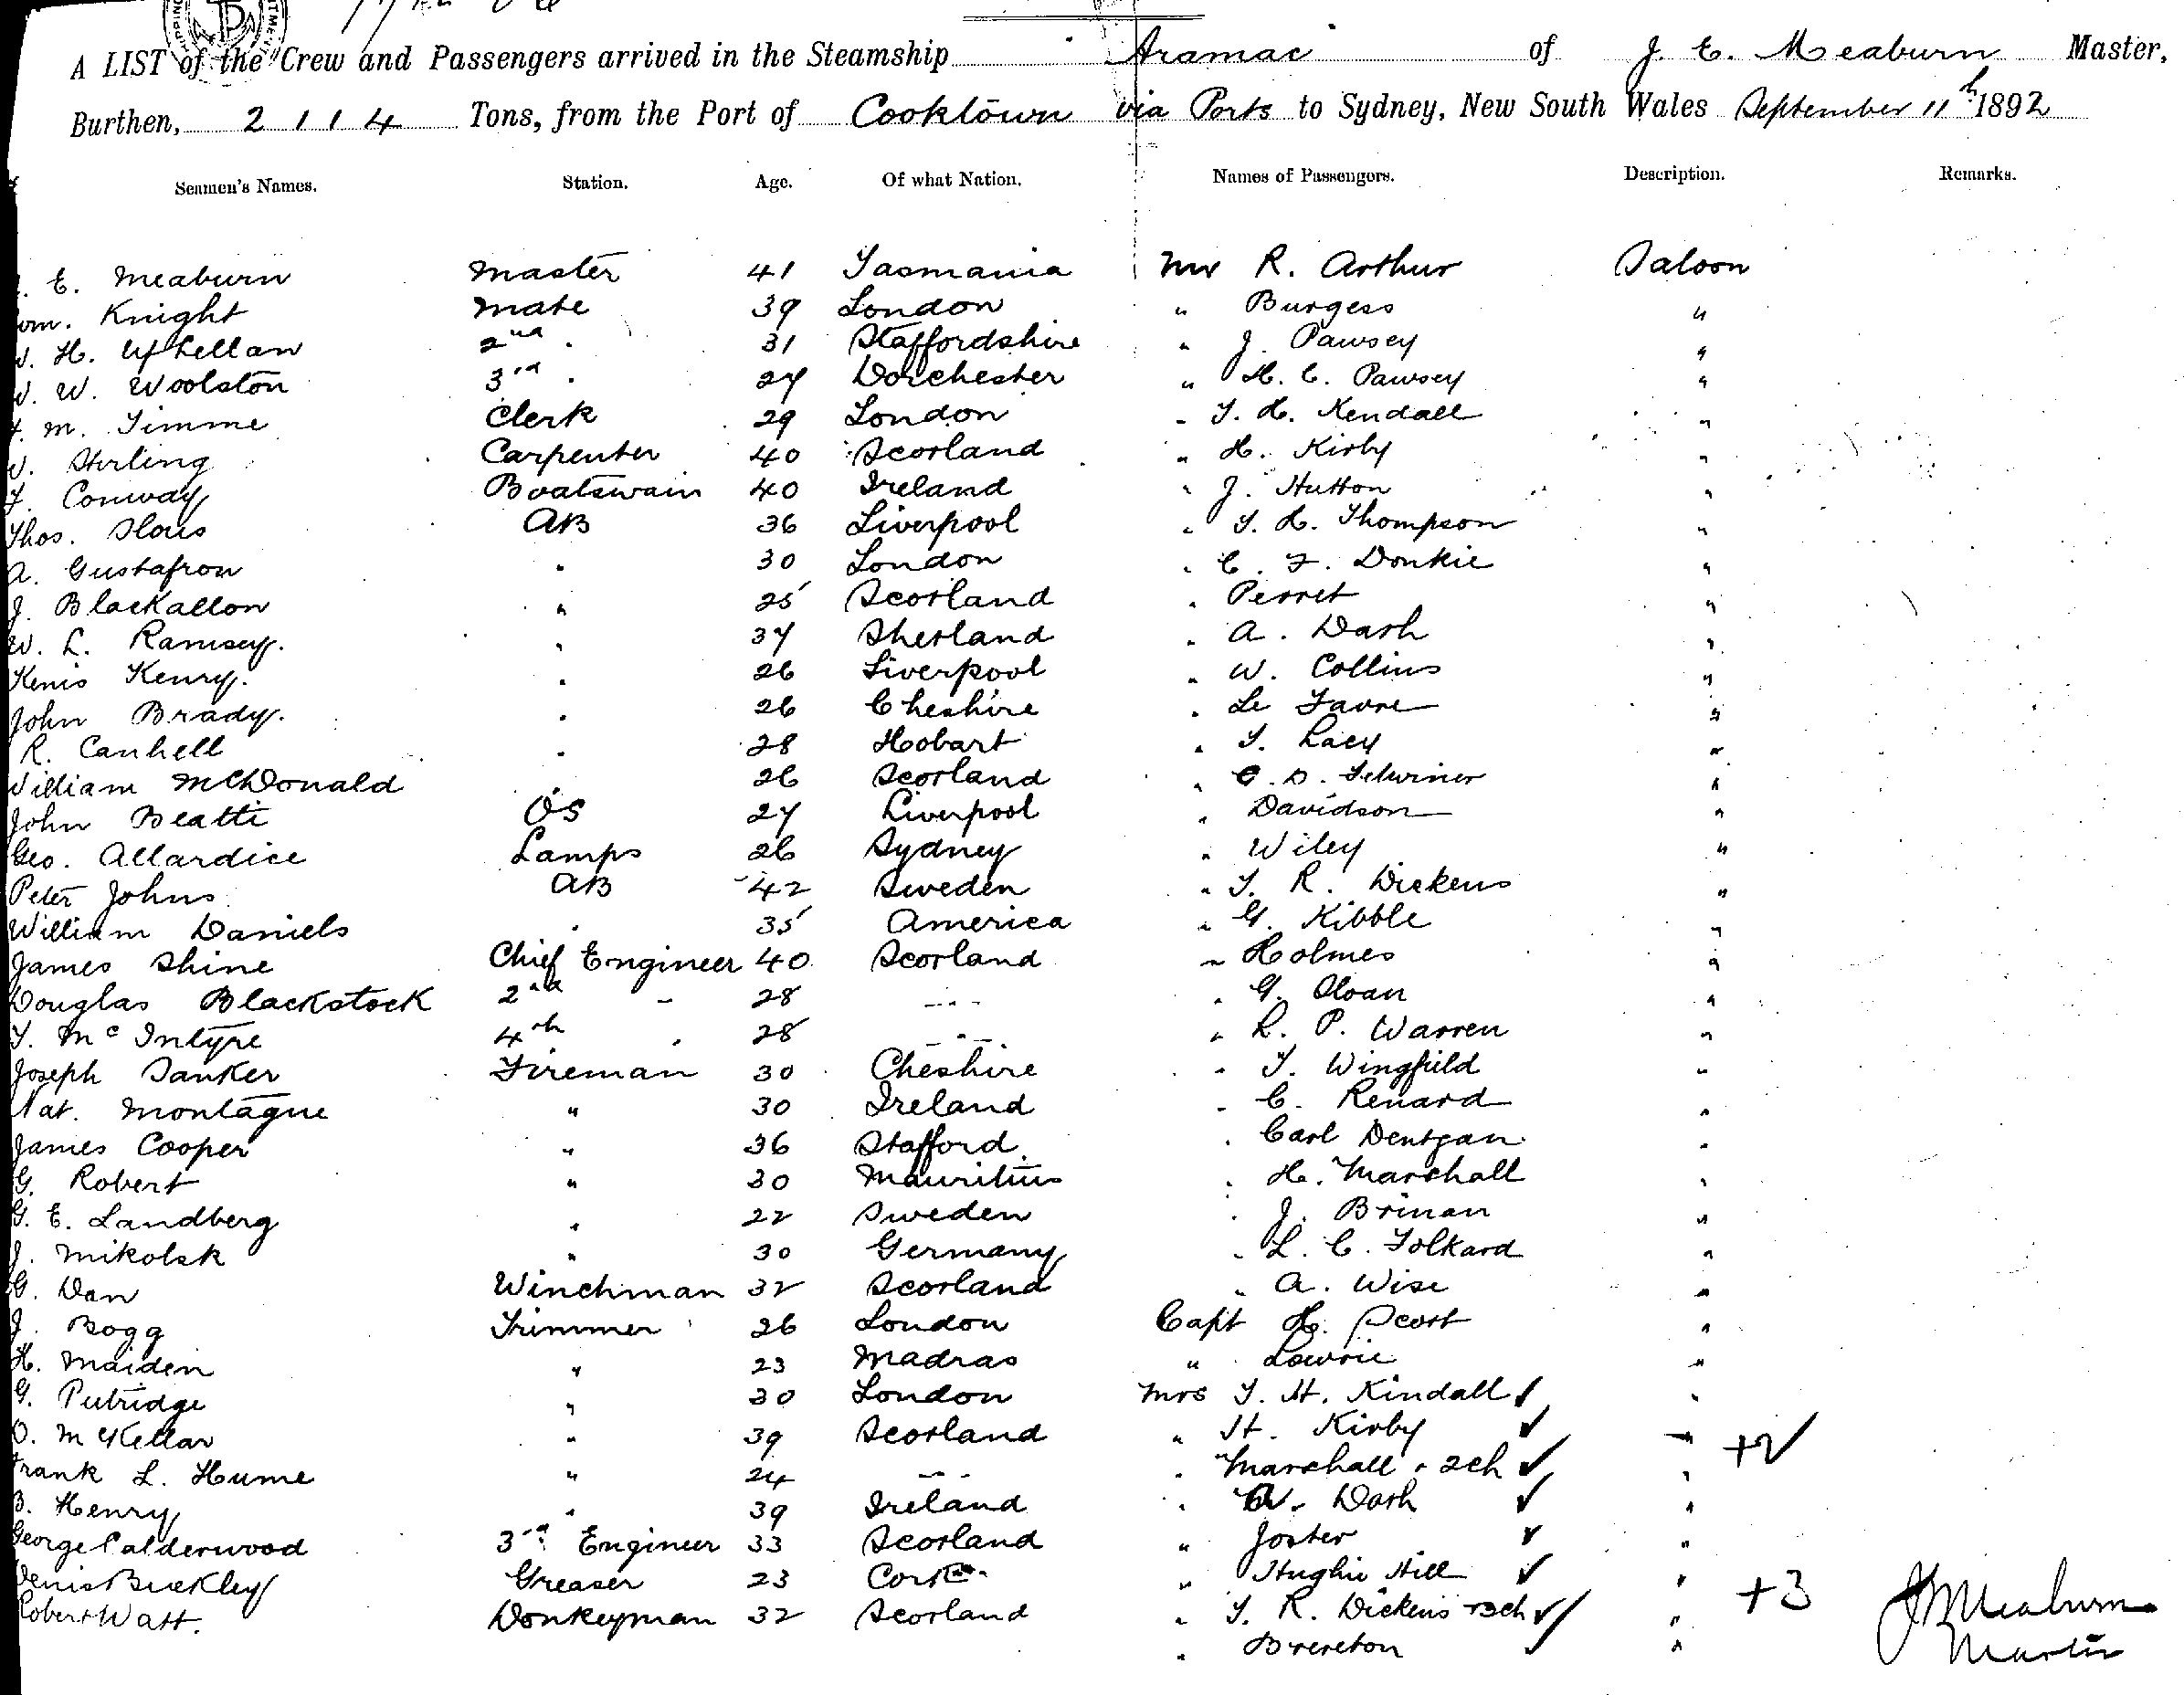 A LIST of the Crew and Passengers arrived in the Steamship "Aramac" of J. E. Meaburn Master,
Burthen, 2114 Tons, from the Port of Cooktown via Ports to Sydney, New South Wales September 11th 1892
Seamen's Names. Station. Age. Of what Nation. Names of Passengers. Description. Remarks.
. E. Meaburn Master 41 Tasmania Mr R. Arthur Saloon
Wm. Knight Mate 39 London " Burgess "
W. H. 2nd " 31 Staffordshire " J. Pawsey "
W. W. Woolston 3rd " 27 Dorchester " H. C. Pawsey "
F. M. Timme Clerk 29 London " T. H. Kendall "
W. Stirling Carpenter 40 Scotland " H. Kirby "
F. Conway Boatswain 40 Ireland " J. Hutton "
Thos. AB 36 Liverpool " T. H. Thompson "
A. Gustafson " 30 London " C. F. Donkie "
J. Blackallon " 25 Scotland " Perret "
W. L. Ramsey. " 37 Shetland " A. Dash "
Kenis Kenry. " 26 Liverpool " W. Collins "
John Brady. " 26 Cheshire " Le Favre "
R. Canhell " 28 Hobart " T. Lacy "
William McDonald " 26 Scotland " "
John Beatti OS 27 Liverpool " Davidson "
Geo. Allardice Lamps 26 Sydney " Wiley "
Peter Johns AB 42 Sweden " T. R. Dickens "
William Daniels " 35 America " G. Kibble "
James Shine Chief Engineer 40 Scotland " Holmes "
Douglas Blackstock 2nd " 28 " G. Sloan "
T. McIntyre 4th " 28 " L. P. Warren "
Joseph Danker Fireman 30 Cheshire " T. Wingfield "
Nat. Montague " 30 Ireland " C. Renard "
James Cooper " 36 Stafford. " Carl Dentgan "
G. Robert " 30 Mauritius " H. Marshall "
G. E. Landberg " 22 Sweden " J. Brinan "
J. Mikolsk " 30 Germany " L. C. Folkard "
G. Dan Winchman 32 Scotland " A. Wise "
J. Bogg Trimmer 26 London Capt H. Scott "
H. Maiden " 23 Madras " Lowrie "
G. Putridge " 30 London Mrs T. H. Kindall ✓ "
D. McKellar " 39 Scotland " H. Kirby ✓ "
Frank L. Hume " 24 " Marshall + 2ch ✓ " +2 ✓
B. Henry " 39 Ireland " Dash ✓ "
George Calderwood 3rd Engineer 33 Scotland " Joster ✓ "
Denis Buckley Greaser 23 Cork " Hughie Hill ✓ "
Robert Watt. Donkeyman 32 Scotland " T. R. Dickens + 3ch ✓ " +3 J E Meaburn
" Brereton ✓ " Master